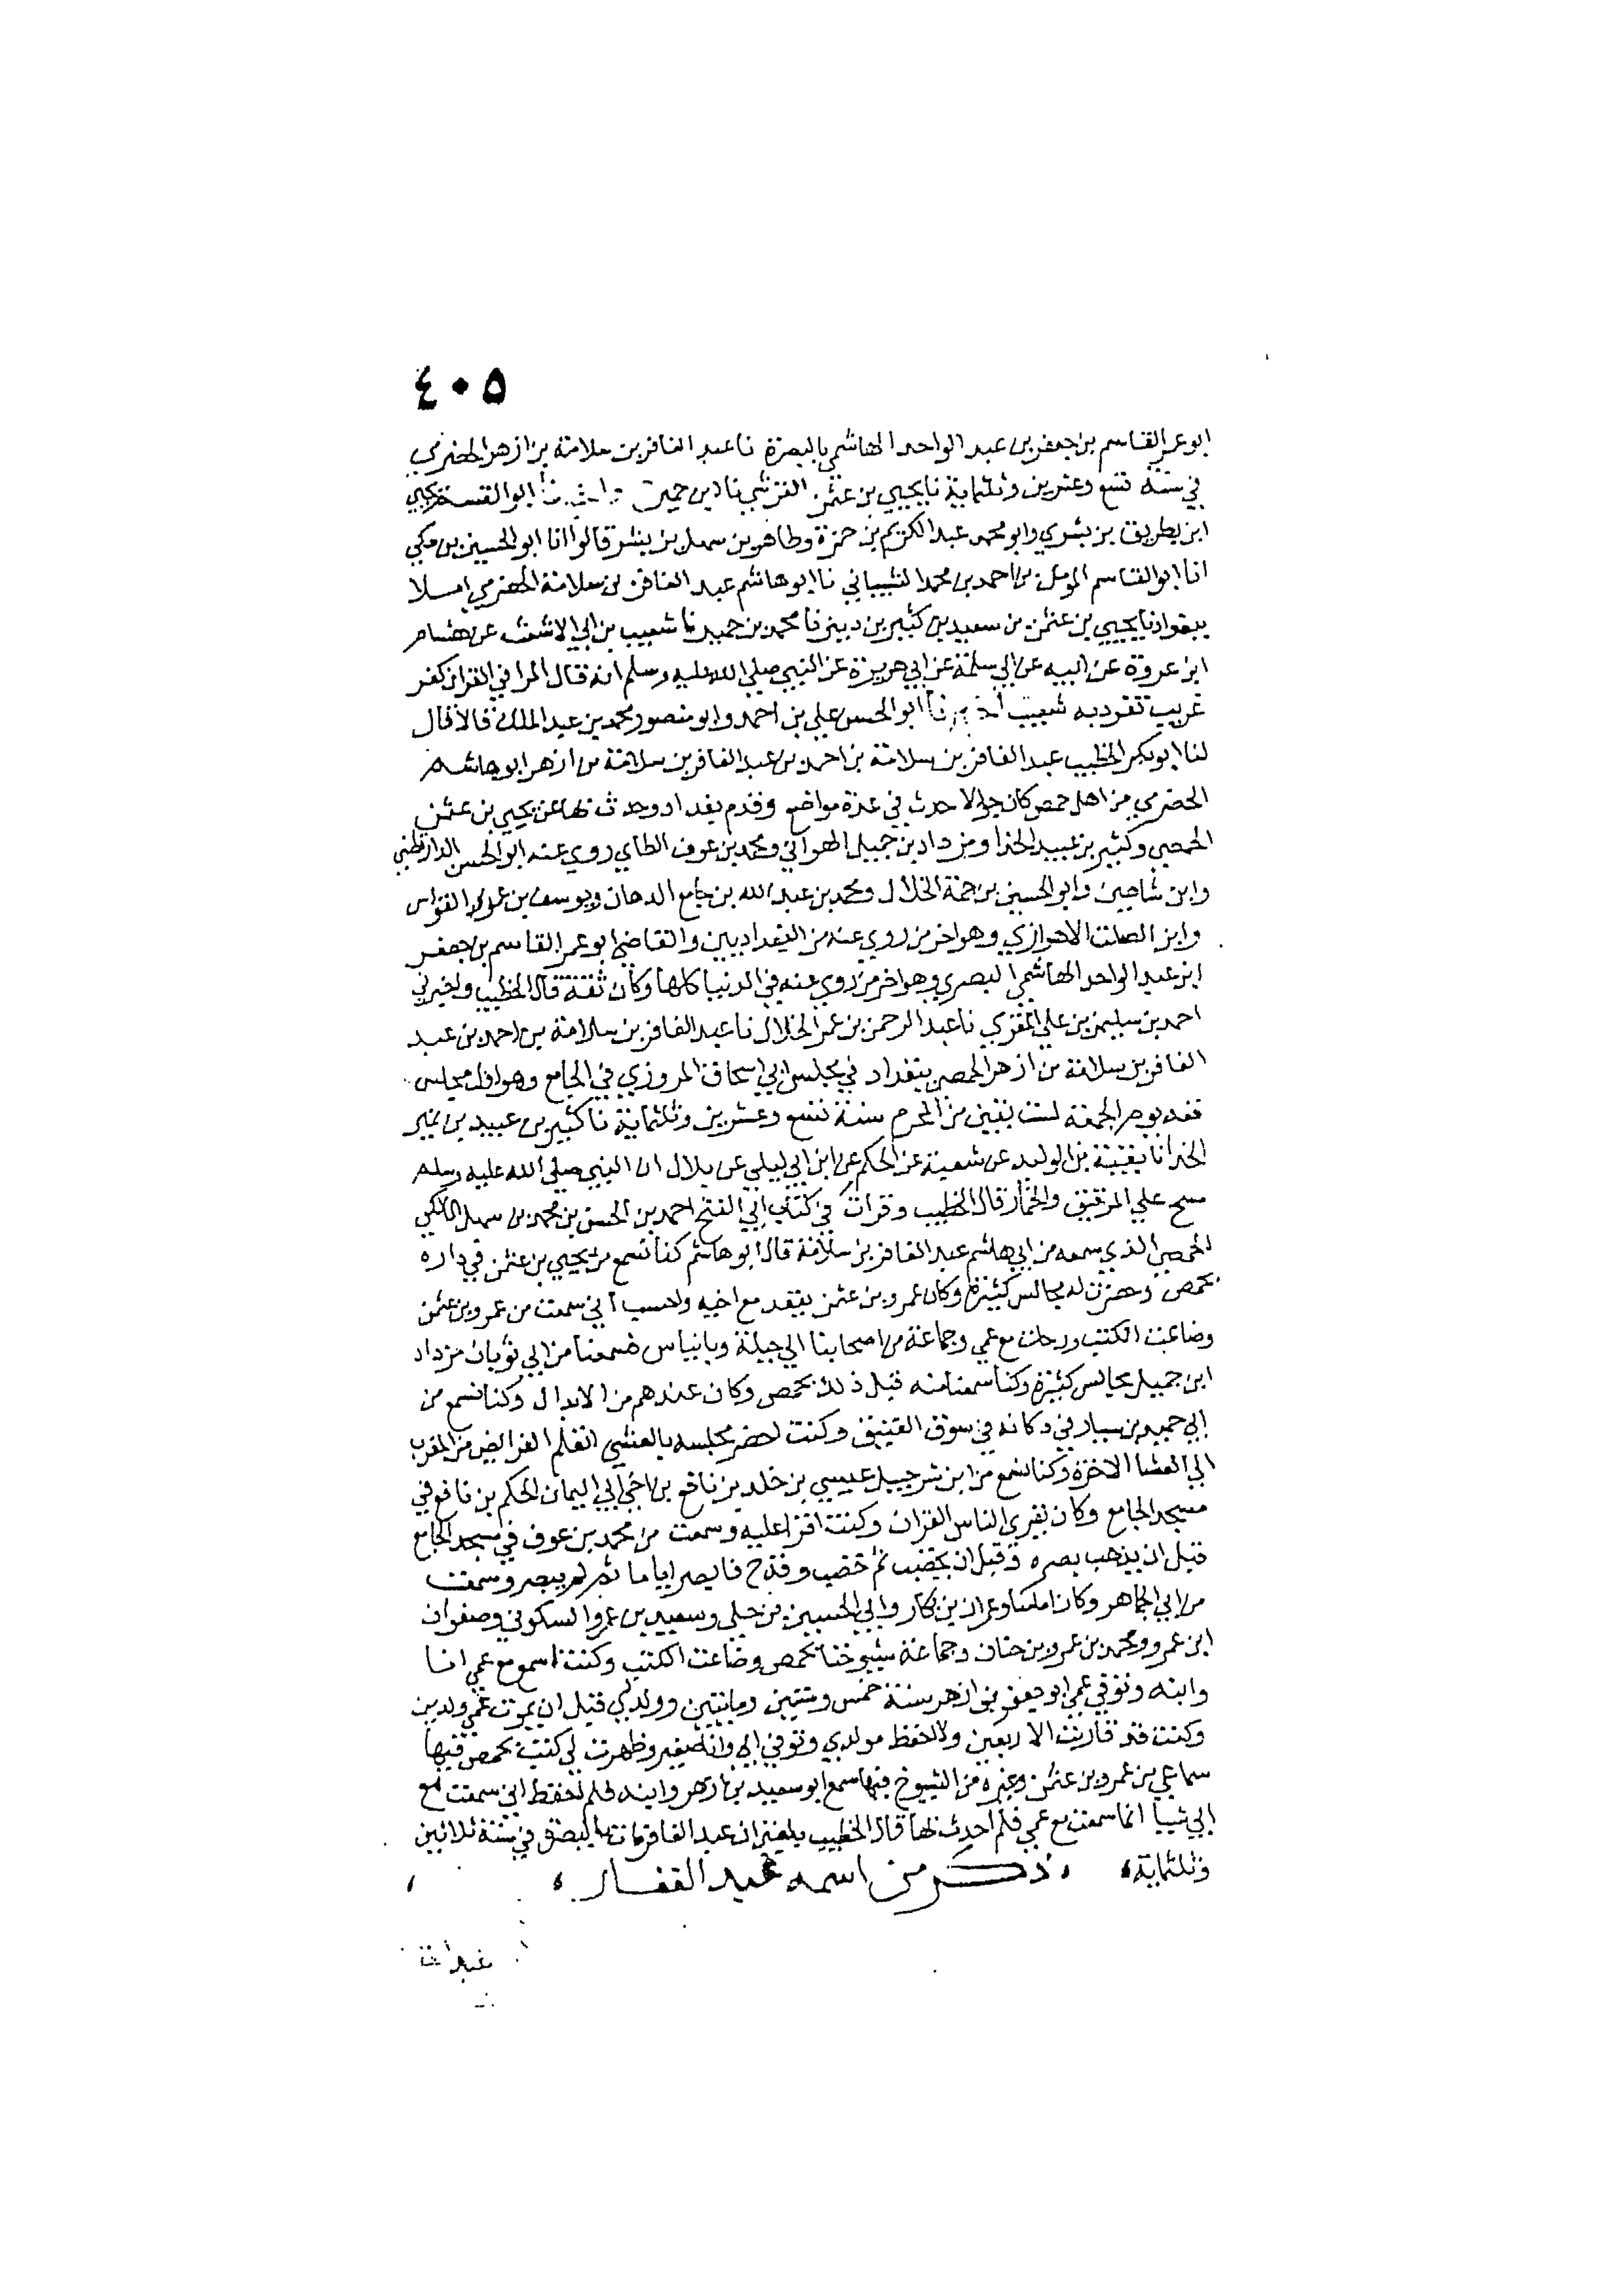 ٤٠٥
ابو عمر القاسم بن جعفر بن عبد الواحد الهاشمي بالبصرة نا عبد الغافر بن سلامة بن ازهر الحضرمي
في سنة تسع وعشرين وثلثماية نا يحيي بن عثمن القرشي نا ابن حمير ابو القسم يحيي
ابن بطريق بن بشري وابو محمد عبد الكريم بن حمزة وطاهر بن سهل بن بشر قالوا انا ابو الحسين بن مكي
انا ابو القاسم المومل بن احمد بن محمد الشيباني نا ابو هاشم عبد الغافر بن سلامة الحضرمي املا
ببغداد نا يحيي بن عثمن بن سعيد بن كثير بن دينر نا محمد بن حمير نا شعيب بن ابي الاشعث عن هشام
ابن عروة عن ابيه عن ابي سلمة عن ابي هريرة عن النبي صلي الله عليه وسلم انه قال المرا في القران كفر
غريب تفرد به شعيب ابو الحسن علي بن احمد وابو منصور محمد بن عبد الملك قالا قال
لنا ابو بكر الخطيب عبد الغافر بن سلامة بن احمد بن عبد الغافر بن سلامة بن ازهر ابو هاشم
الحضرمي من اهل حمص كان جوالا حدث في عدة مواضع وقدم بغداد وحدث بها عن يحيي بن عثمن
الحمصي وكثير بن عبيد الحذا ومزداد بن جميل البهراني ومحمد بن عوف الطاي روي عنه ابو الحسن الدارقطني
وابن شاهين وابو الحسين بن حمة الخلال ومحمد بن عبد الله بن جامع الدهان ويوسف بن عمر القواس
وابن الصلت الاهوازي وهو اخر من روي عنه من البغداديين والقاضي ابو عمر القاسم بن جعفر
ابن عبد الواحد الهاشمي البصري وهو اخر من روي عنه في الدنيا كلها وكان ثقة قال الخطيب واخبرني
احمد بن سليمن بن علي المقري نا عبد الرحمن بن عمر الخلال نا عبد الغافر بن سلامة بن احمد بن عبد
الغافر بن سلامة بن ازهر الحمصي ببغداد في مجلس ابي اسحاق المروزي في الجامع وهو اول مجلس
قعد يوم الجمعة لست بقين من المحرم سنة تسع وعشرين وثلثماية نا كثير بن عبيد بن نمير
الحذا نا بقية بن الوليد عن شعبة عن الحكم عن ابن ابي ليلي عن بلال ان النبي صلي الله عليه وسلم
مسح علي الموقين والخمار قال الخطيب وقرات في كتاب ابي الفتح احمد بن الحسن بن محمد بن سهل المالكي
الحمصي الذي سمعه من ابي هاشم عبد الغافر بن سلامة قال ابو هاشم كنا نسمع من يحيي بن عثمن في داره
بحمص وحضرت له مجالس كثيرة وكان عمرو بن عثمن يقعد مع اخيه واحسب اني سمعت من عمرو بن عثمن
وضاعت الكتب ورحلت مع عمي وجماعة من اصحابنا الي جبلة وبانياس فسمعنا من ابي ثوبان مزداد
ابن جميل مجالس كثيرة وكنا سمعنا منه قبل ذلك بحمص وكان عندهم من الابدال وكنا نسمع من
ابي حميد بن سيار في دكانه في سوق العتيق وكنت احضر مجلسه بالعشي اتعلم الفرايض من المغرب
الي العشا الاخرة وكنا نسمع من ابن شرحبيل عيسي بن خلد بن نافع بن اخي ابي اليمان الحكم بن نافع في
مسجد الجامع وكان يقري الناس القران وكنت اقرا عليه وسمعت من محمد بن عوف في مسجد الجامع
قبل ان يذهب بصره وقبل ان يخضب ثم خضب وقدح فابصر اياما ثم لم يبصر وسمعت
من ابي الجماهر وكان املسا وعمران بن بكار وابي الحسين بن خلي وسعيد بن عمرو السكوني وصفوان
ابن عمرو ومحمد بن عمرو بن حنان وجماعة شيوخنا بحمص وضاعت الكتب وكنت اسمع مع عمي انا
وابنه وتوفي عمي ابو جعفر بن ازهر سنة خمس وستين ومائتين وولد لي قبل ان يموت عمي ولدين
وكنت قد قاربت الاربعين ولا احفظ مولدي وتوفي ابي وانا صغير وظهرت لي كتب بحمص فيها
سماعي من عمرو بن عثمن وغيره من الشيوخ فيها سمع ابو سعيد بن ازهر وابنه فلم احفظ اني سمعت مع
ابي شيا انما سمعت مع عمي فلم احدث بها قال الخطيب بلغني ان عبد الغافر مات بالبصرة في سنة ثلاثين
وثلثماية ذكر من اسمه عبد الغفار